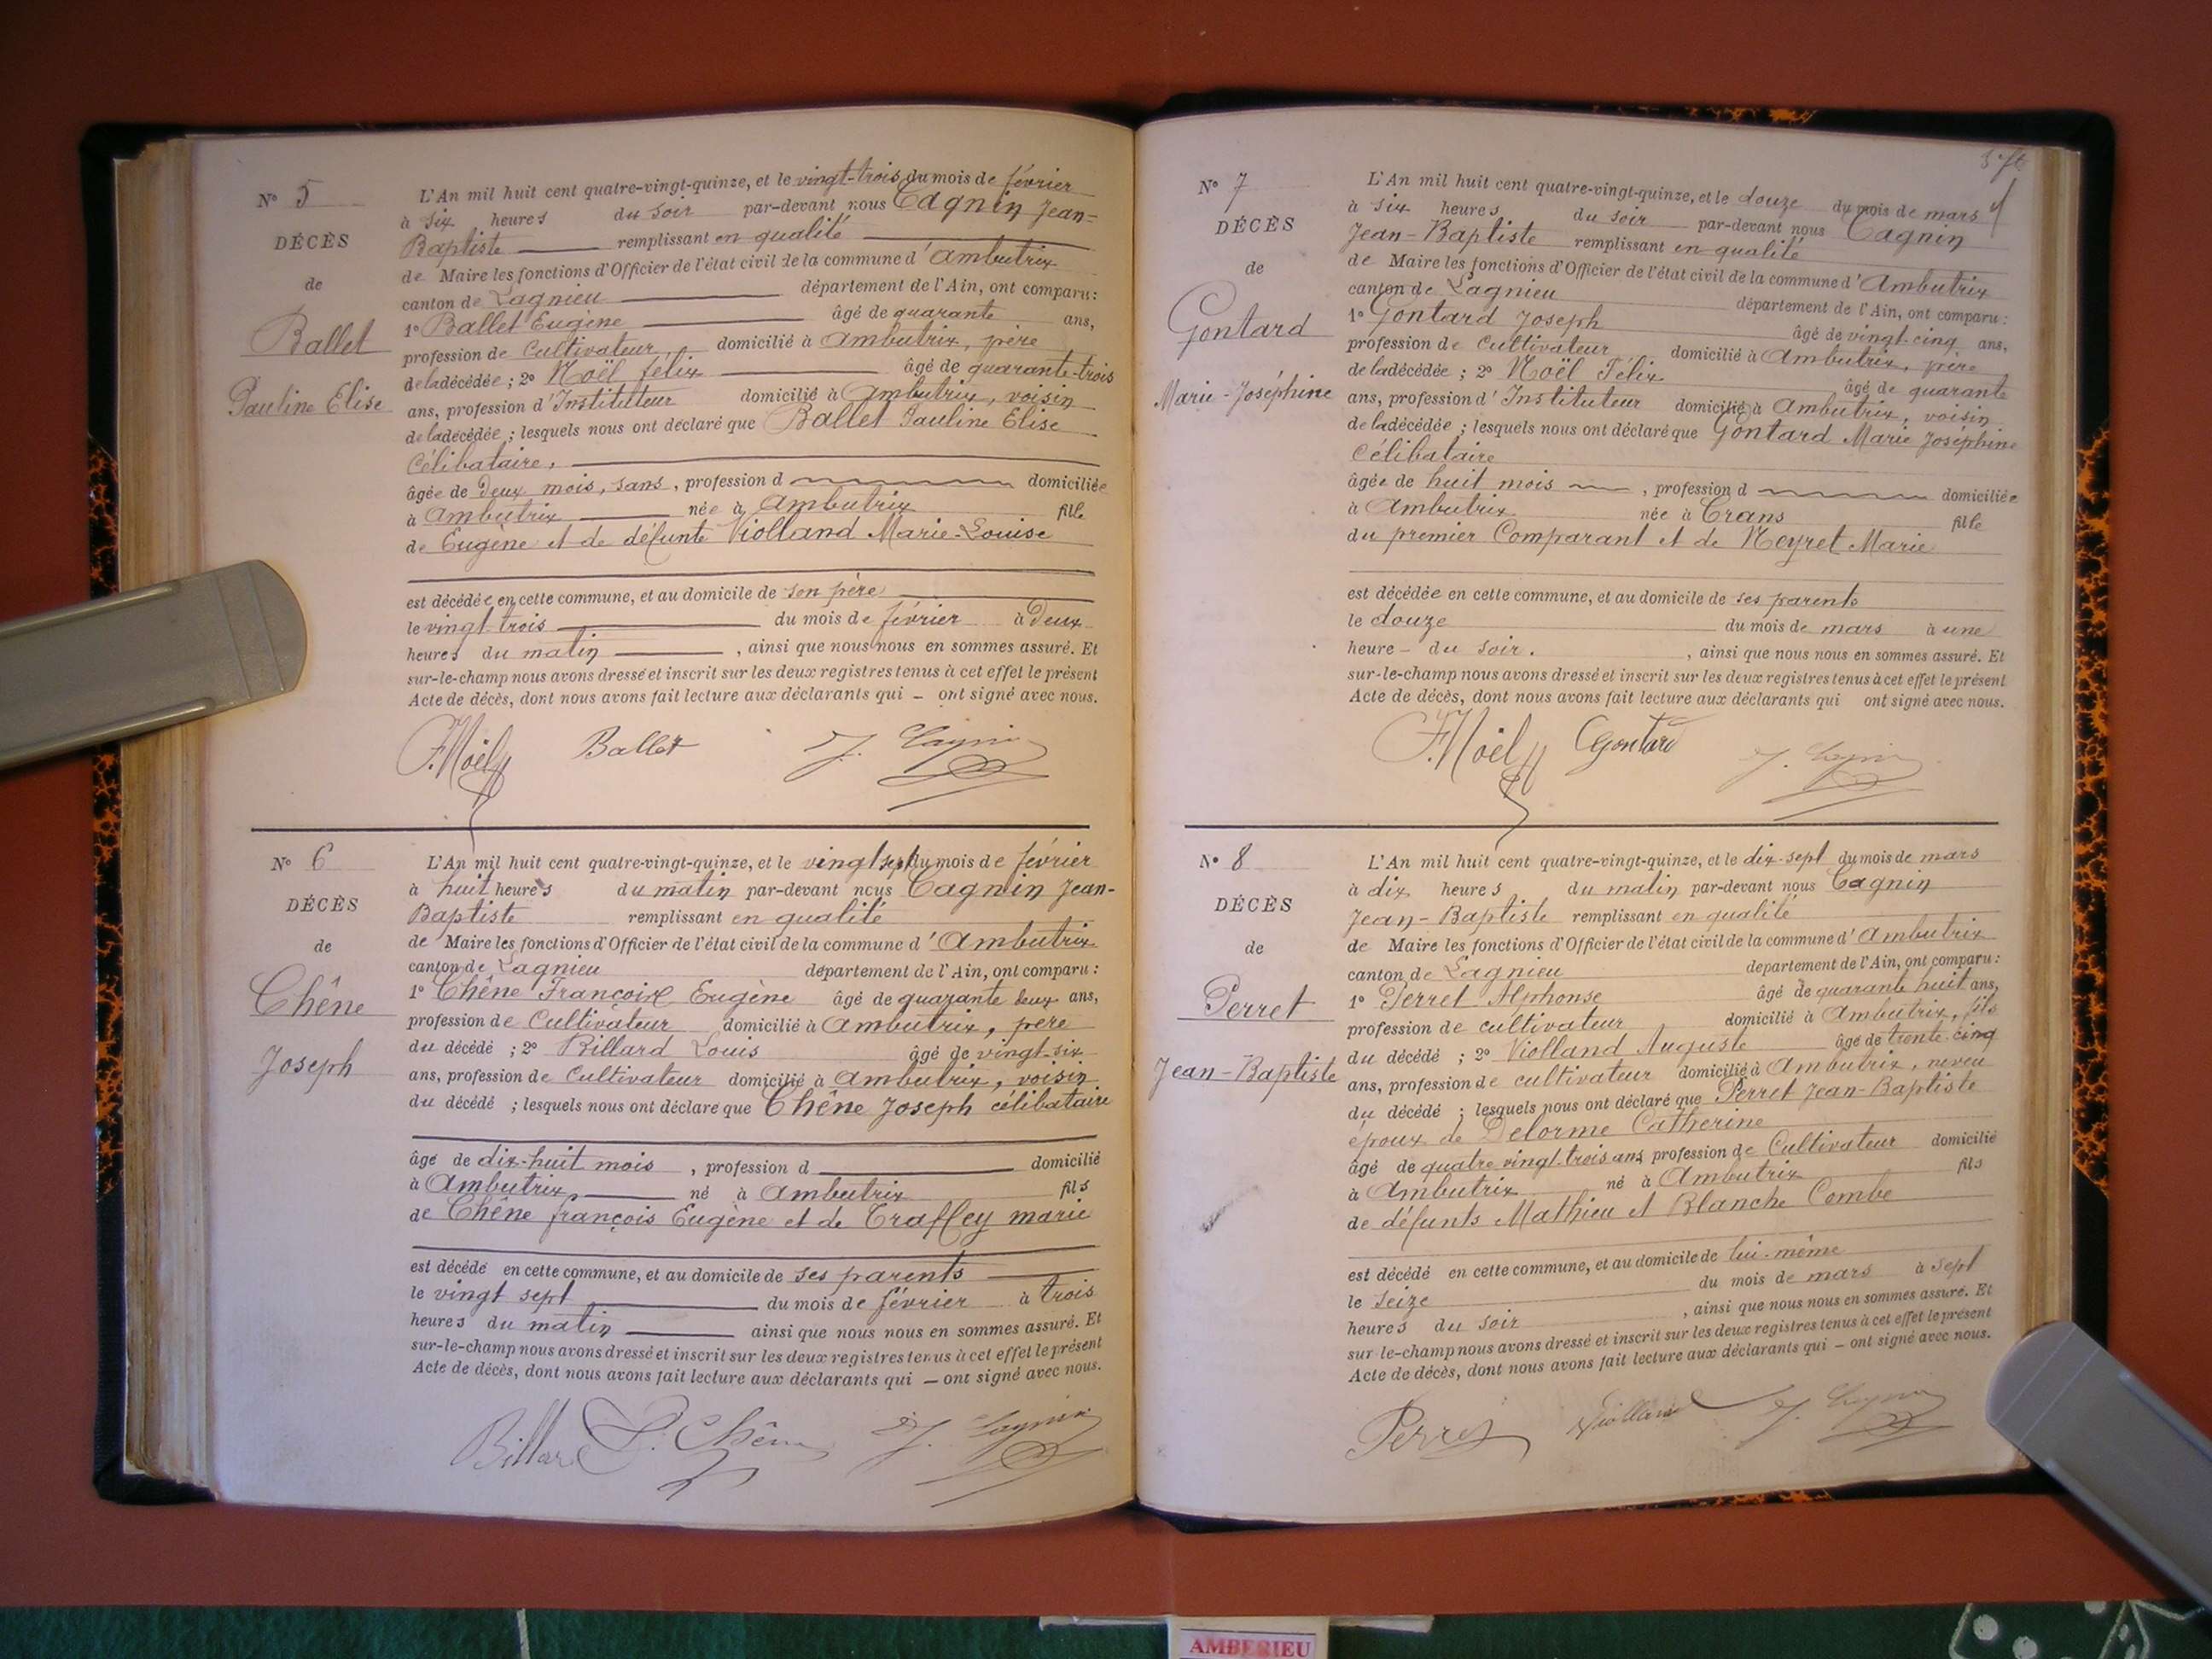 N° 5
DÉCÈS
de
Ballet
Pauline Elise
L'An mil huit cent quatre-vingt-quinze, et le vingt-trois du mois de février
à six heures du soir par-devant nous Cagnin Jean-
Baptiste remplissant en qualité
de Maire les fonctions d'Officier de l'état civil de la commune d'Ambutrix
canton de Lagnieu département de l'Ain, ont comparu:
1° Ballet Eugène âgé de quarante ans,
profession de Cultivateur domicilié à Ambutrix, père
de la décédée ; 2° Noël félix âgé de quarante-trois
ans, profession d'Instituteur domicilié à Ambutrix, voisin
de la décédée ; lesquels nous ont déclaré que Ballet Pauline Elise
Célibataire,
âgée de Deux mois, sans, profession d domiciliée
à Ambutrix née à Ambutrix fille
de Eugène et de défunte Violland Marie-Louise
est décédée en cette commune, et au domicile de son père
le vingt trois du mois de février à Deux
heures du matin , ainsi que nous nous en sommes assuré. Et
sur-le-champ nous avons dressé et inscrit sur les deux registres tenus à cet effet le présent
Acte de décès, dont nous avons fait lecture aux déclarants qui — ont signé avec nous.
F. Noël Ballet J. Cagnin
N° 6
DÉCÈS
de
Chêne
Joseph
L'An mil huit cent quatre-vingt-quinze, et le vingt sept du mois de février
à huit heures du matin par-devant nous Cagnin Jean-
Baptiste remplissant en qualité
de Maire les fonctions d'Officier de l'état civil de la commune d'Ambutrix
canton de Lagnieu département de l'Ain, ont comparu :
1° Chêne François Eugène âgé de quarante deux ans,
profession de Cultivateur domicilié à Ambutrix, père
du décédé ; 2° Billard Louis âgé de vingt-six
ans, profession de Cultivateur domicilié à Ambutrix, voisin
du décédé ; lesquels nous ont déclaré que Chêne Joseph célibataire
âgé de dix-huit mois , profession d domicilié
à Ambutrix, né à Ambutrix fils
de Chêne françois Eugène et de Traffey marie
est décédé en cette commune, et au domicile de ses parents
le vingt sept du mois de février à trois
heures du matin ainsi que nous nous en sommes assuré. Et
sur-le-champ nous avons dressé et inscrit sur les deux registres tenus à cet effet le présent
Acte de décès, dont nous avons fait lecture aux déclarants qui — ont signé avec nous.
Billard Chêne J. Cagnin
N° 7
DÉCÈS
de
Gontard
Marie-Joséphine
L'An mil huit cent quatre-vingt-quinze, et le douze du mois de mars
à six heures du soir par-devant nous Cagnin
Jean-Baptiste remplissant en qualité
de Maire les fonctions d'Officier de l'état civil de la commune d'Ambutrix
canton de Lagnieu département de l'Ain, ont comparu :
1° Gontard Joseph âgé de vingt-cinq ans,
profession de Cultivateur domicilié à Ambutrix, père
de la décédée ; 2° Noël Félix âgé de quarante
ans, profession d'Instituteur domicilié à Ambutrix, voisin
de la décédée ; lesquels nous ont déclaré que Gontard Marie Joséphine
Célibataire
âgée de huit mois , profession d domiciliée
à Ambutrix née à Crans fille
du premier Comparant et de Neyret Marie
est décédée en cette commune, et au domicile de ses parents
le douze du mois de mars à une
heure - du soir. , ainsi que nous nous en sommes assuré. Et
sur-le-champ nous avons dressé et inscrit sur les deux registres tenus à cet effet le présent
Acte de décès, dont nous avons fait lecture aux déclarants qui ont signé avec nous.
F. Noël Gontard J. Cagnin
N° 8
DÉCÈS
de
Perret
Jean-Baptiste
L'An mil huit cent quatre-vingt-quinze, et le dix-sept du mois de mars
à dix heures du matin par-devant nous Cagnin
Jean-Baptiste remplissant en qualité
de Maire les fonctions d'Officier de l'état civil de la commune d'Ambutrix
canton de Lagnieu département de l'Ain, ont comparu :
1° Perret Alphonse âgé de quarante huit ans,
profession de cultivateur domicilié à Ambutrix, fils
du décédé ; 2° Violland Auguste âgé de trente-cinq
ans, profession de cultivateur domicilié à Ambutrix, neveu
du décédé ; lesquels nous ont déclaré que Perret Jean-Baptiste
époux de Delorme Catherine
âgé de quatre vingt-trois ans profession de Cultivateur domicilié
à Ambutrix né à Ambutrix fils
de défunts Mathieu et Blanche Combe
est décédé en cette commune, et au domicile de lui-même
le seize du mois de mars à sept
heures du soir , ainsi que nous nous en sommes assuré. Et
sur-le-champ nous avons dressé et inscrit sur les deux registres tenus à cet effet le présent
Acte de décès, dont nous avons fait lecture aux déclarants qui — ont signé avec nous.
Perret Violland J. Cagnin
AMBERIEU